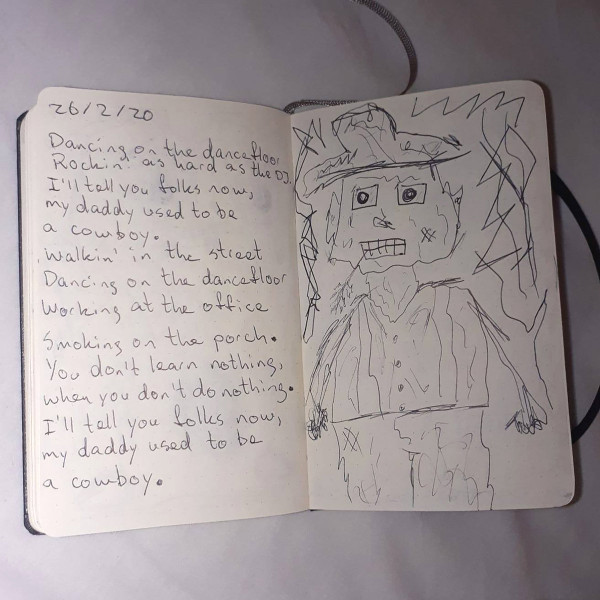 26/2/20
Dancing on the dancefloor
Rockin' as hard as the DJ.
I'll tell you folks now,
my daddy used to be
a cowboy.
Walkin' in the street
Dancing on the dancefloor
Working at the office
Smoking on the porch.
You don't learn nothing,
when you don't do nothing.
I'll tell you folks now,
my daddy used to be
a cowboy.